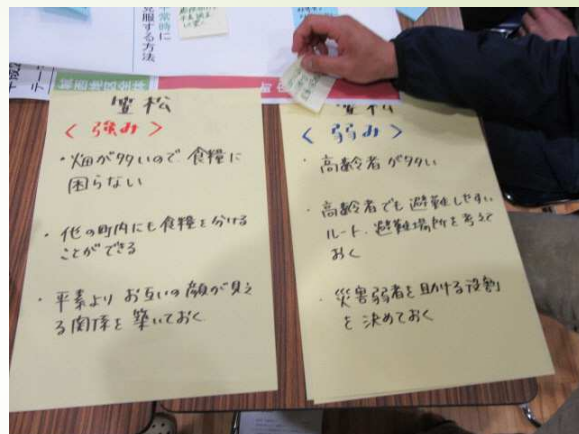 常時に
克服する方法
笠松
<強み>
・畑が多いので食糧に
困らない
・他の町内にも食糧を分ける
ことができる
・平素よりお互いの顔が見え
る関係を築いておく
笠松
<弱み>
・高齢者が多い
・高齢者でも避難しやすい
ルート、避難場所を考えて
おく
・災害弱者を助ける役割
を決めておく